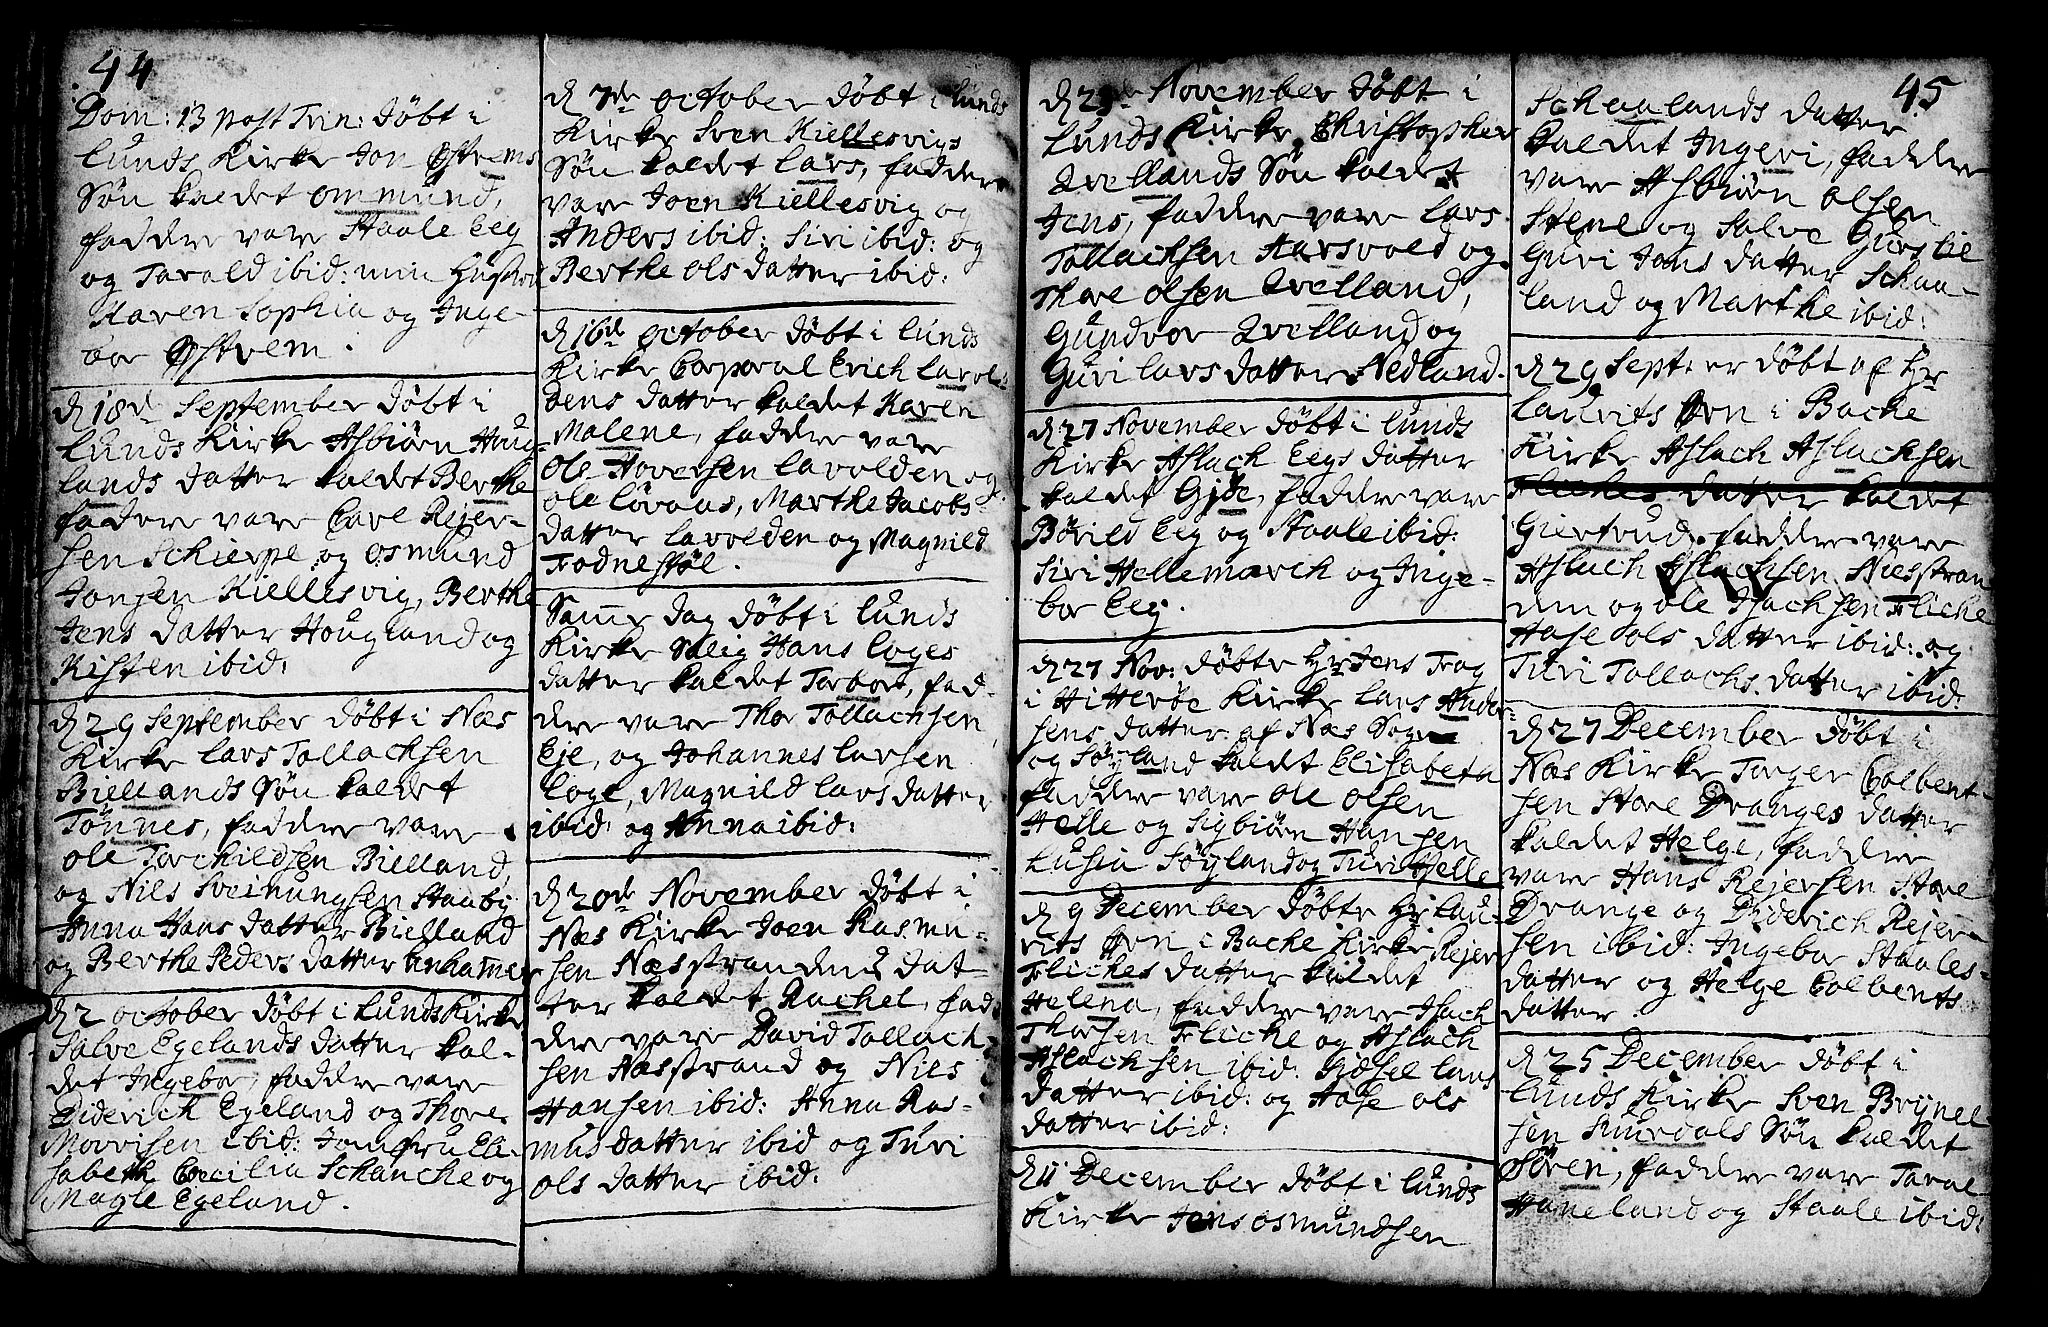 44
Dom: 13 post Trin: døbt i
Lunds Kirke Jon Østrems
Søn kaldet Ommund,
faddere vare Staale Eeg
og Tarald ibid: min Hustru
Karen Sophia og Inge-
bor Østrem.
d 18de September døbt i
Lunds Kirke Asbiørn Houg-
lands datter kaldet Berthe
fadere vare Carl Rejer-
sen Schierpe og Osmund
Jonsen Kiellesvig, Berthe
Jens datter Hougland og
Kisten ibid:
d 29 September døbt i Næs
Kirke Lars Tollachsen
Biellands Søn kaldet
Tønnes, faddere vare
Ole Torchildsen Bielland,
og Niels Sveinungsen Staaby
Anna Hans datter Bielland
og Berthe Peders datter Enhammer
d 2 October døbt i Lunds Kirke
Salve Egelands datter kal-
det Ingebor, faddere vare
Diderich Egeland og Thore
Morvisen ibid: Jomfru Eli-
sabeth Cecilia Schanche og
Magle Egeland.
d 7de October døbt i Lunds
Kirke Sven Kiellesvigs
Søn kaldet Lars, faddere
vare Joen Kiellesvig og
Anders ibid: Siri ibid: og
Berthe Ols datter ibid:
d 16de October døbt i Lunds
Kirke Corporal Erich Lavol-
dens datter kaldet Karen
Malene, faddere vare
Ole Hoversen Lavolden og
Ole Løvaas, Marthe Jacobs-
datter Lavolden og Magnild
Fodnestøl.
Samme dag døbt i Lunds
Kirke Salig Hans Eoges
datter kaldet Torbor, fad-
dere vare Thor Tollachsen
Eje, og Johannes Larsen
Eoge, Magnild Lars datter
ibid: og Anna ibid:
d 20de November døbt i
Næs Kirke Joen Rasmu-
sen Næsstrandens dat-
ter kaldet Rachel, fad-
dere vare David Tollach-
sen Næsstrand og Niels
Hansen ibid: Anna Ras-
mus datter ibid og Turi
Ols datter ibid:
d 23de November døbt i
Lunds Kirke Christopher
Qvellands Søn kaldet
Jens, faddere vare Lars
Tollachsen Aarsvold og
Thore Olsen Qvelland,
Gundvor Qvelland og
Guri Lars datter Nedland.
d 27 November døbt i Lunds
Kirke Aslach Eegs datter
kaldet Gjøe, faddere vare
Børild Eeg og Staale ibid:
Siri Hellemarch og Inge-
bor Eeg.
d 27 Nov: døbte Hr Jens Trog
i Hitterøe Kirke Lars Ander-
sens datter af Næs Sogn
og Søyland kaldet Elisabeth
faddere vare Ole Olsen
Helle og Sigbiørn Hansen
Lusia Søyland og Turi Helle
d 9 December døbte Hr Lau-
rits Ørn i Bache Kirke Rejer
Fliches datter kaldet
Helena, faddere vare Isach
Thorsen Fliche og Aslach
Aslachsen ibid: Gidsel Lars
datter ibid: og Aase Ols
datter ibid:
d 11 December døbt i Lunds
Kirke Jens Osmundsen
45
Schaalands datter
kaldet Ingeri, faddere
vare Asbiørn Olsen
Stene og Salve Gurslie
Guri Jons datter Schaa-
land og Marthe ibid:
d 29 Sept: er døbt af Hr
Laurits Ørn i Bache
Kirke Aslach Aslachsen
Fliches datter kaldet
Giertrud. faddere vare
Aslach Aslachsen Næsstran
den og Ole Isachsen Fliche
Aase Ols datter ibid: og
Turi Tollachs datter ibid:
d 27 December døbt i
Næs Kirke Torger Colbent-
sen Store Dranges datter
kaldet Helge, faddere
vare Hans Rejersen Store
Drange og Diderich Rejer-
sen ibid: Ingebor Staales-
datter og Helge Colbents
datter.
d 25 December døbt i
Lunds Kirke Sven Brynel
sen Surdals Søn kaldet
Søren, faddere vare Taral
Haneland og Staale ibid: